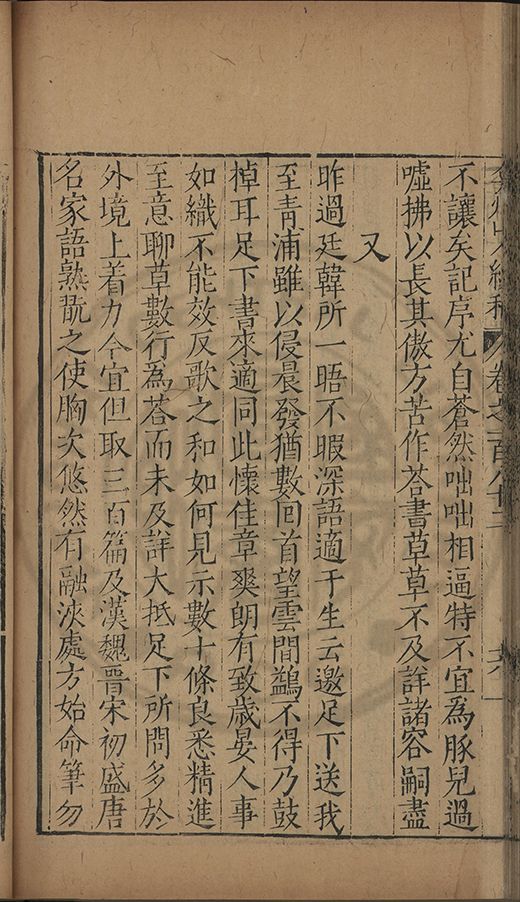 不讓矣記序尤自蒼然咄咄相逼特不宜爲豚兒過
嘘拂以長其傲方苦作荅書草草不及詳諸容嗣盡
又
昨過廷韓所一晤不暇深語適于生云邀足下送我
至青浦雖以侵晨發猶數回首望雲間鷁不得乃鼓
棹耳足下書來適同此懷佳章爽朗有致歳晏人事
如織不能效反歌之和如何見示數十條良悉精進
至意聊草數行爲荅而未及詳大抵足下所問多於
外境上着力今宜但取三百篇及漢魏晉宋初盛唐
名家語熟翫之使胸次悠然有融浹處方始命筆勿